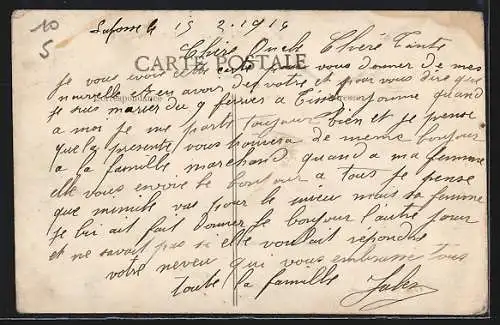 10
5
Lafosse le 15 2. 1914
CARTE POSTALE
Chère Oncle Chère Tante
Je vous envoie cette carte pour vous donner de mes
nouvelle et en avoir des votre et pour vous dire que
Correspondance
je suis marier du 9 fevrier a quand
a moi je me porte toujours bien et je pense
que la presente vous trouvera de meme bonjour
a la famille marchand quand a ma femme
elle vous envoie le bonjour a tous je pense
que mimile vas pour le mieux mais sa femme
je lui ait fait donner le bonjour l'autre jour
et ne savait pas si elle voulait répondre
votre neveu qui vous embrasse tous
toute la famille Jules